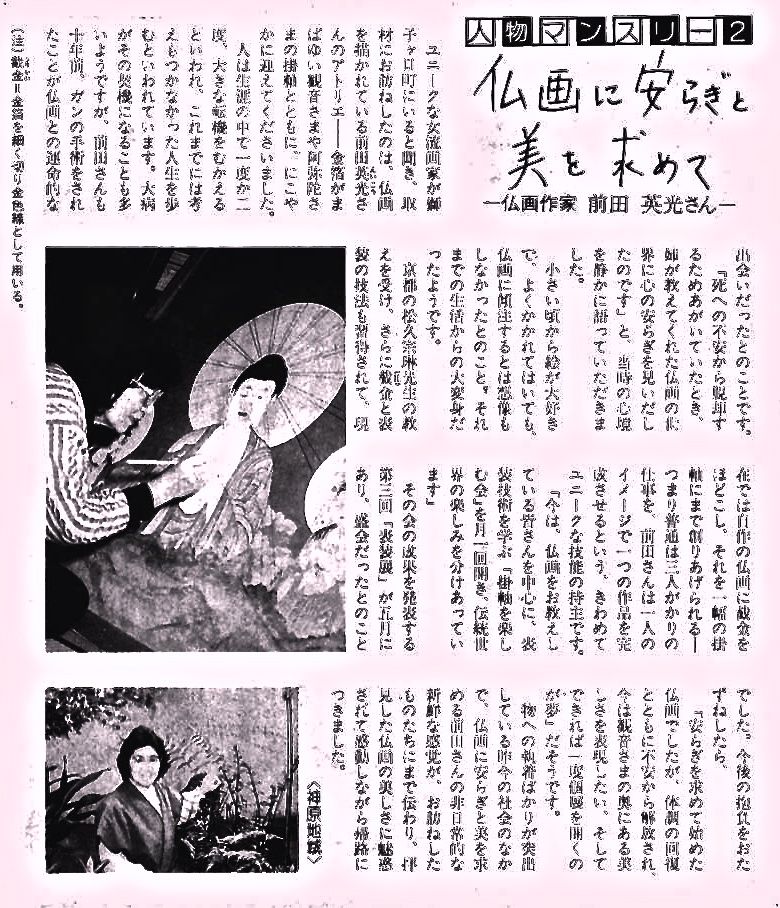 人物マンスリー2
仏画に安らぎと
美を求めて
―仏画作家 前田 英光さん―
ユニークな女流画家が獅
子ヶ口町にいると聞き、取
材にお訪ねしたのは、仏画
を描かれている前田英光さ
んのアトリエ――金箔がま
ばゆい観音さまや阿弥陀さ
まの掛軸とともに、にこや
かに迎えてくださいました。
人は生涯の中で一度か二
度、大きな転機をむかえる
といわれ、これまでには考
えもつかなかった人生を歩
むといわれています。大病
がその契機になることも多
いようですが、前田さんも
十年前、ガンの手術をされ
たことが仏画との運命的な
出会いだったとのことです。
『死への不安から脱却す
るためあがいていたとき、
姉が教えてくれた仏画の世
界に心の安らぎを見いだし
たのです』と、当時の心境
を静かに語っていただきま
した。
小さい頃から絵が大好き
で、よくかかれてはいても、
仏画に傾注するとは想像も
しなかったとのこと。それ
までの生活からの大変身だ
ったようです。
京都の松久宗琳先生の教
えを受け、さらに截金と表
装の技法も習得されて、現
在では自作の仏画に截金を
ほどこし、それを一幅の掛
軸にまで創りあげられる―
つまり普通は三人がかりの
仕事を、前田さんは一人の
イメージで一つの作品を完
成させるという、きわめて
ユニークな技能の持主です。
『今は、仏画をお教えし
ている皆さんを中心に、表
装技術を学ぶ『掛軸を楽し
む会』を月一回開き、伝統世
界の楽しみを分けあってい
ます』
その会の成果を発表する
第三回『表装展』が五月に
あり、盛会だったとのこと
でした。今後の抱負をおた
ずねしたら、
『安らぎを求めて始めた
仏画でしたが、体調の回復
とともに不安から解放され、
今は観音さまの奥にある美
しさを表現したい。そして
できれば一度個展を開くの
が夢』だそうです。
物への執着ばかりが突出
している昨今の社会のなか
で、仏画に安らぎと美を求
める前田さんの非日常的な
新鮮な感覚が、お訪ねした
ものたちにまで伝わり、拝
見した仏画の美しさに魅惑
されて感動しながら帰路に
つきました。
〈神原地域〉
(注) 截金=金箔を細く切り金色線として用いる。